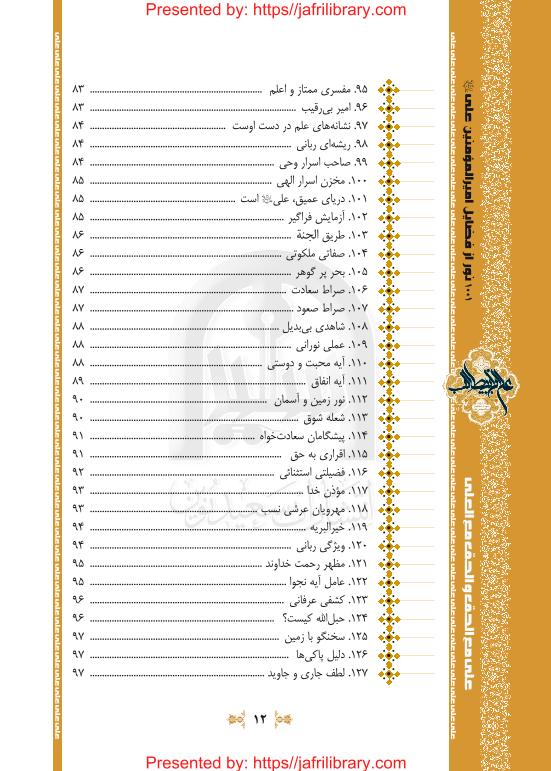 Presented by: https://jafrilibrary.com
۹۵. مفسری ممتاز و اعلم ........ ۸۳
۹۶. امیر بی‌رقیب ........ ۸۳
۹۷. نشانه‌های علم در دست اوست ........ ۸۴
۹۸. ریشه‌ای ربانی ........ ۸۴
۹۹. صاحب اسرار وحی ........ ۸۴
۱۰۰. مخزن اسرار الهی ........ ۸۵
۱۰۱. دریای عمیق، علی است ........ ۸۵
۱۰۲. آزمایش فراگیر ........ ۸۵
۱۰۳. طریق الجنة ........ ۸۶
۱۰۴. صفاتی ملکوتی ........ ۸۶
۱۰۵. بحر پر گوهر ........ ۸۶
۱۰۶. صراط سعادت ........ ۸۷
۱۰۷. صراط صعود ........ ۸۷
۱۰۸. شاهدی بی‌بدیل ........ ۸۸
۱۰۹. عملی نورانی ........ ۸۸
۱۱۰. آیه محبت و دوستی ........ ۸۸
۱۱۱. آیه انفاق ........ ۸۹
۱۱۲. نور زمین و آسمان ........ ۹۰
۱۱۳. شعله شوق ........ ۹۰
۱۱۴. پیشگامان سعادت‌خواه ........ ۹۱
۱۱۵. اقراری به حق ........ ۹۱
۱۱۶. فضیلتی استثنائی ........ ۹۲
۱۱۷. مؤذن خدا ........ ۹۳
۱۱۸. مهرویان عرشی نسب ........ ۹۳
۱۱۹. خیرالبریه ........ ۹۴
۱۲۰. ویژگی ربانی ........ ۹۴
۱۲۱. مظهر رحمت خداوند ........ ۹۵
۱۲۲. عامل آیه نجوا ........ ۹۵
۱۲۳. کشفی عرفانی ........ ۹۶
۱۲۴. حبل‌الله کیست؟ ........ ۹۶
۱۲۵. سخنگو با زمین ........ ۹۷
۱۲۶. دلیل پاکی‌ها ........ ۹۷
۱۲۷. لطف جاری و جاوید ........ ۹۷
۱۲
۱۰۰۱ نور از فضایل امیرالمؤمنین علی
علی مع الحق و الحق مع العلی
Presented by: https://jafrilibrary.com